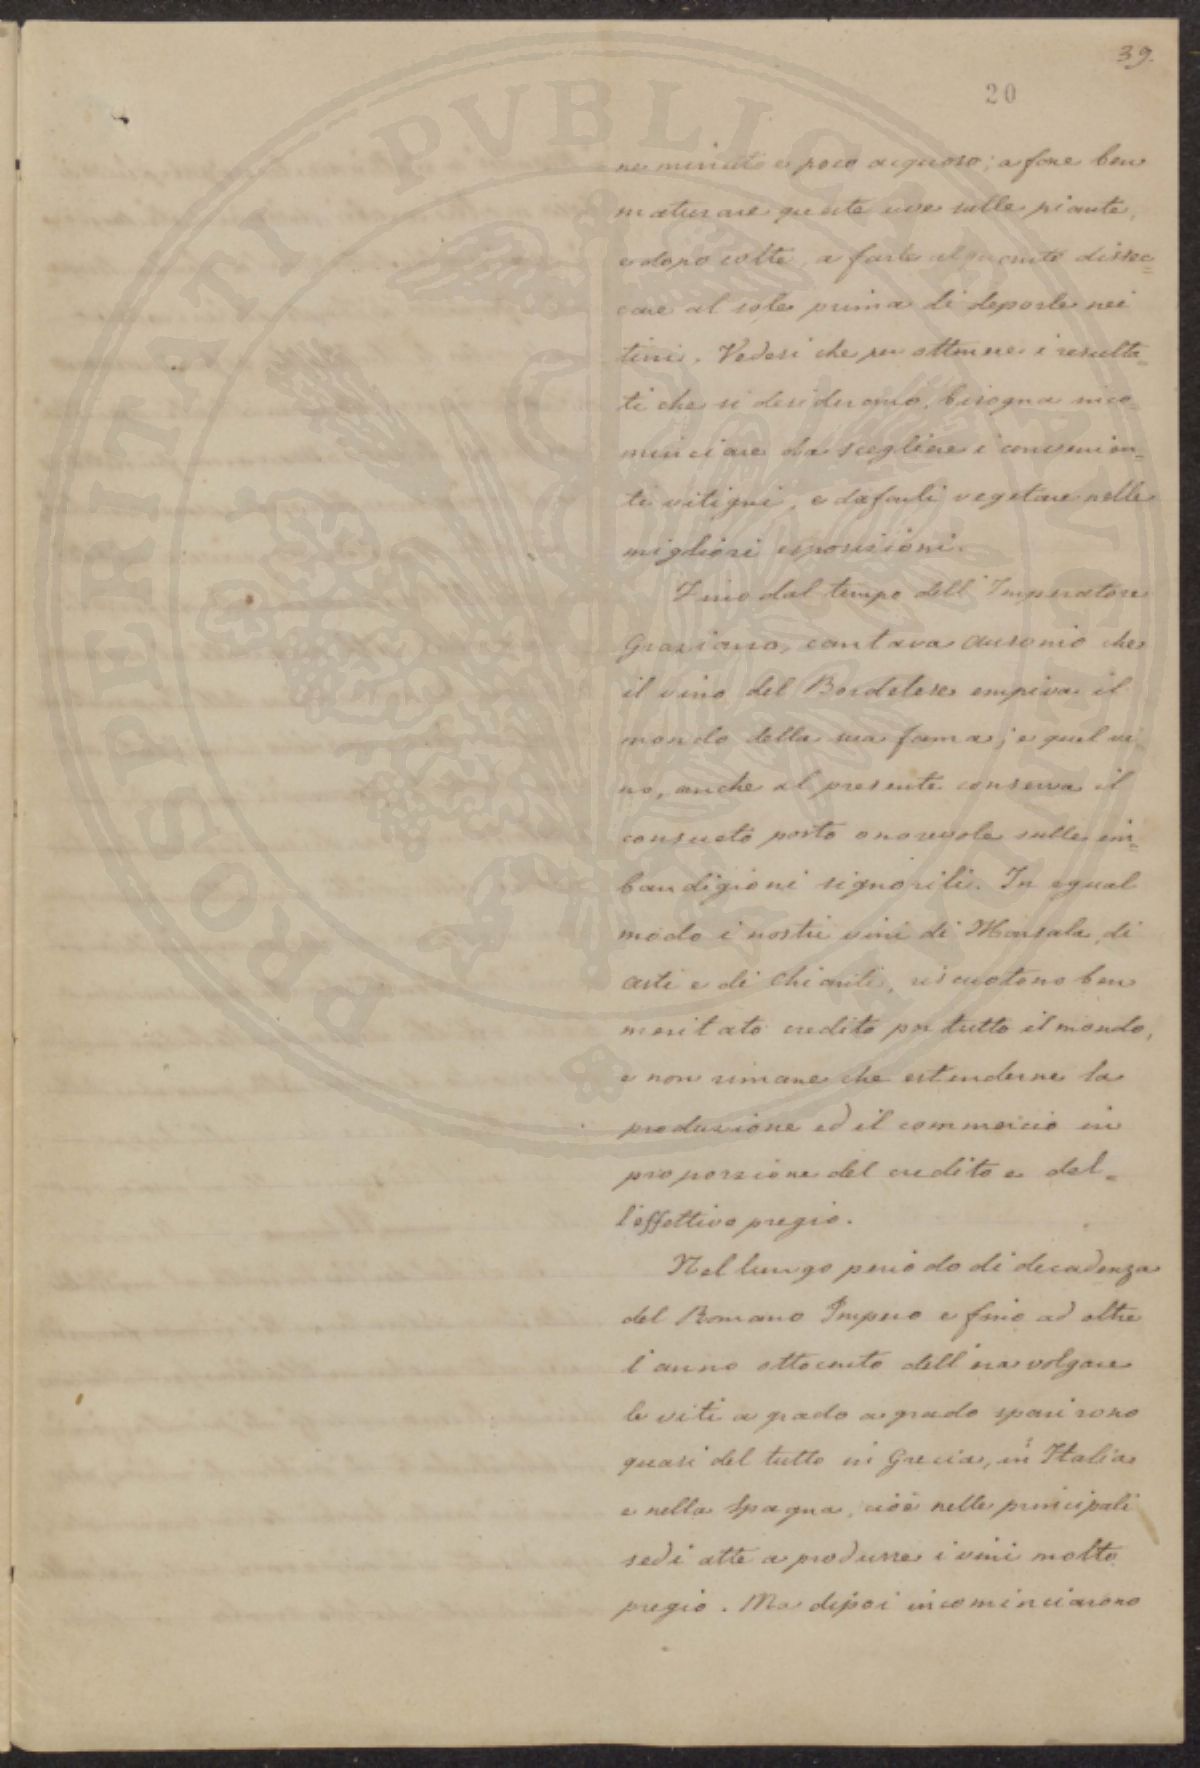 39.
20
ne minuti e poco acquoso; a fare ben
maturare queste uve sulle piante,
e dopo colte, a farle alquanto dissec=
care al sole prima di deporle nei
tini. Vedesi che per ottenere i resulta=
ti che si desiderano, bisogna inco=
minciare da scegliere i convenien=
ti vitigni, e da farli vegetare nelle
migliori esposizioni.
Fino dal tempo dell'Imperatore
Graziano, cantava Ausonio che
il vino del Bordelese empiva il
mondo della sua fama; e quel vi
no, anche al presente conserva il
consueto posto onorevole sulle im=
bandigioni signorili. In egual
modo i nostri vini di Marsala, di
Asti e di Chianti, riscuotono ben
meritato credito per tutto il mondo,
e non rimane che estenderne la
produzione ed il commercio in
proporzione del credito e del=
l'effettivo pregio.
Nel lungo periodo di decadenza
del Romano Impero e fino ad oltre
l'anno ottocento dell'era volgare
le viti a grado a grado sparirono
quasi del tutto in Grecia, in Italia
e nella Spagna, cioè nelle principali
sedi atte a produrre i vini molto
pregio. Ma dipoi incominciarono
PROSPERITATI PVBLICAE